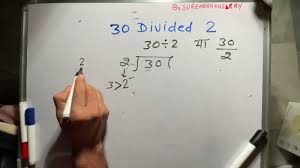 By SURENDRAKHILERY
30 Divided 2
30÷2 या 30/2
2 2⟌30(
3>2